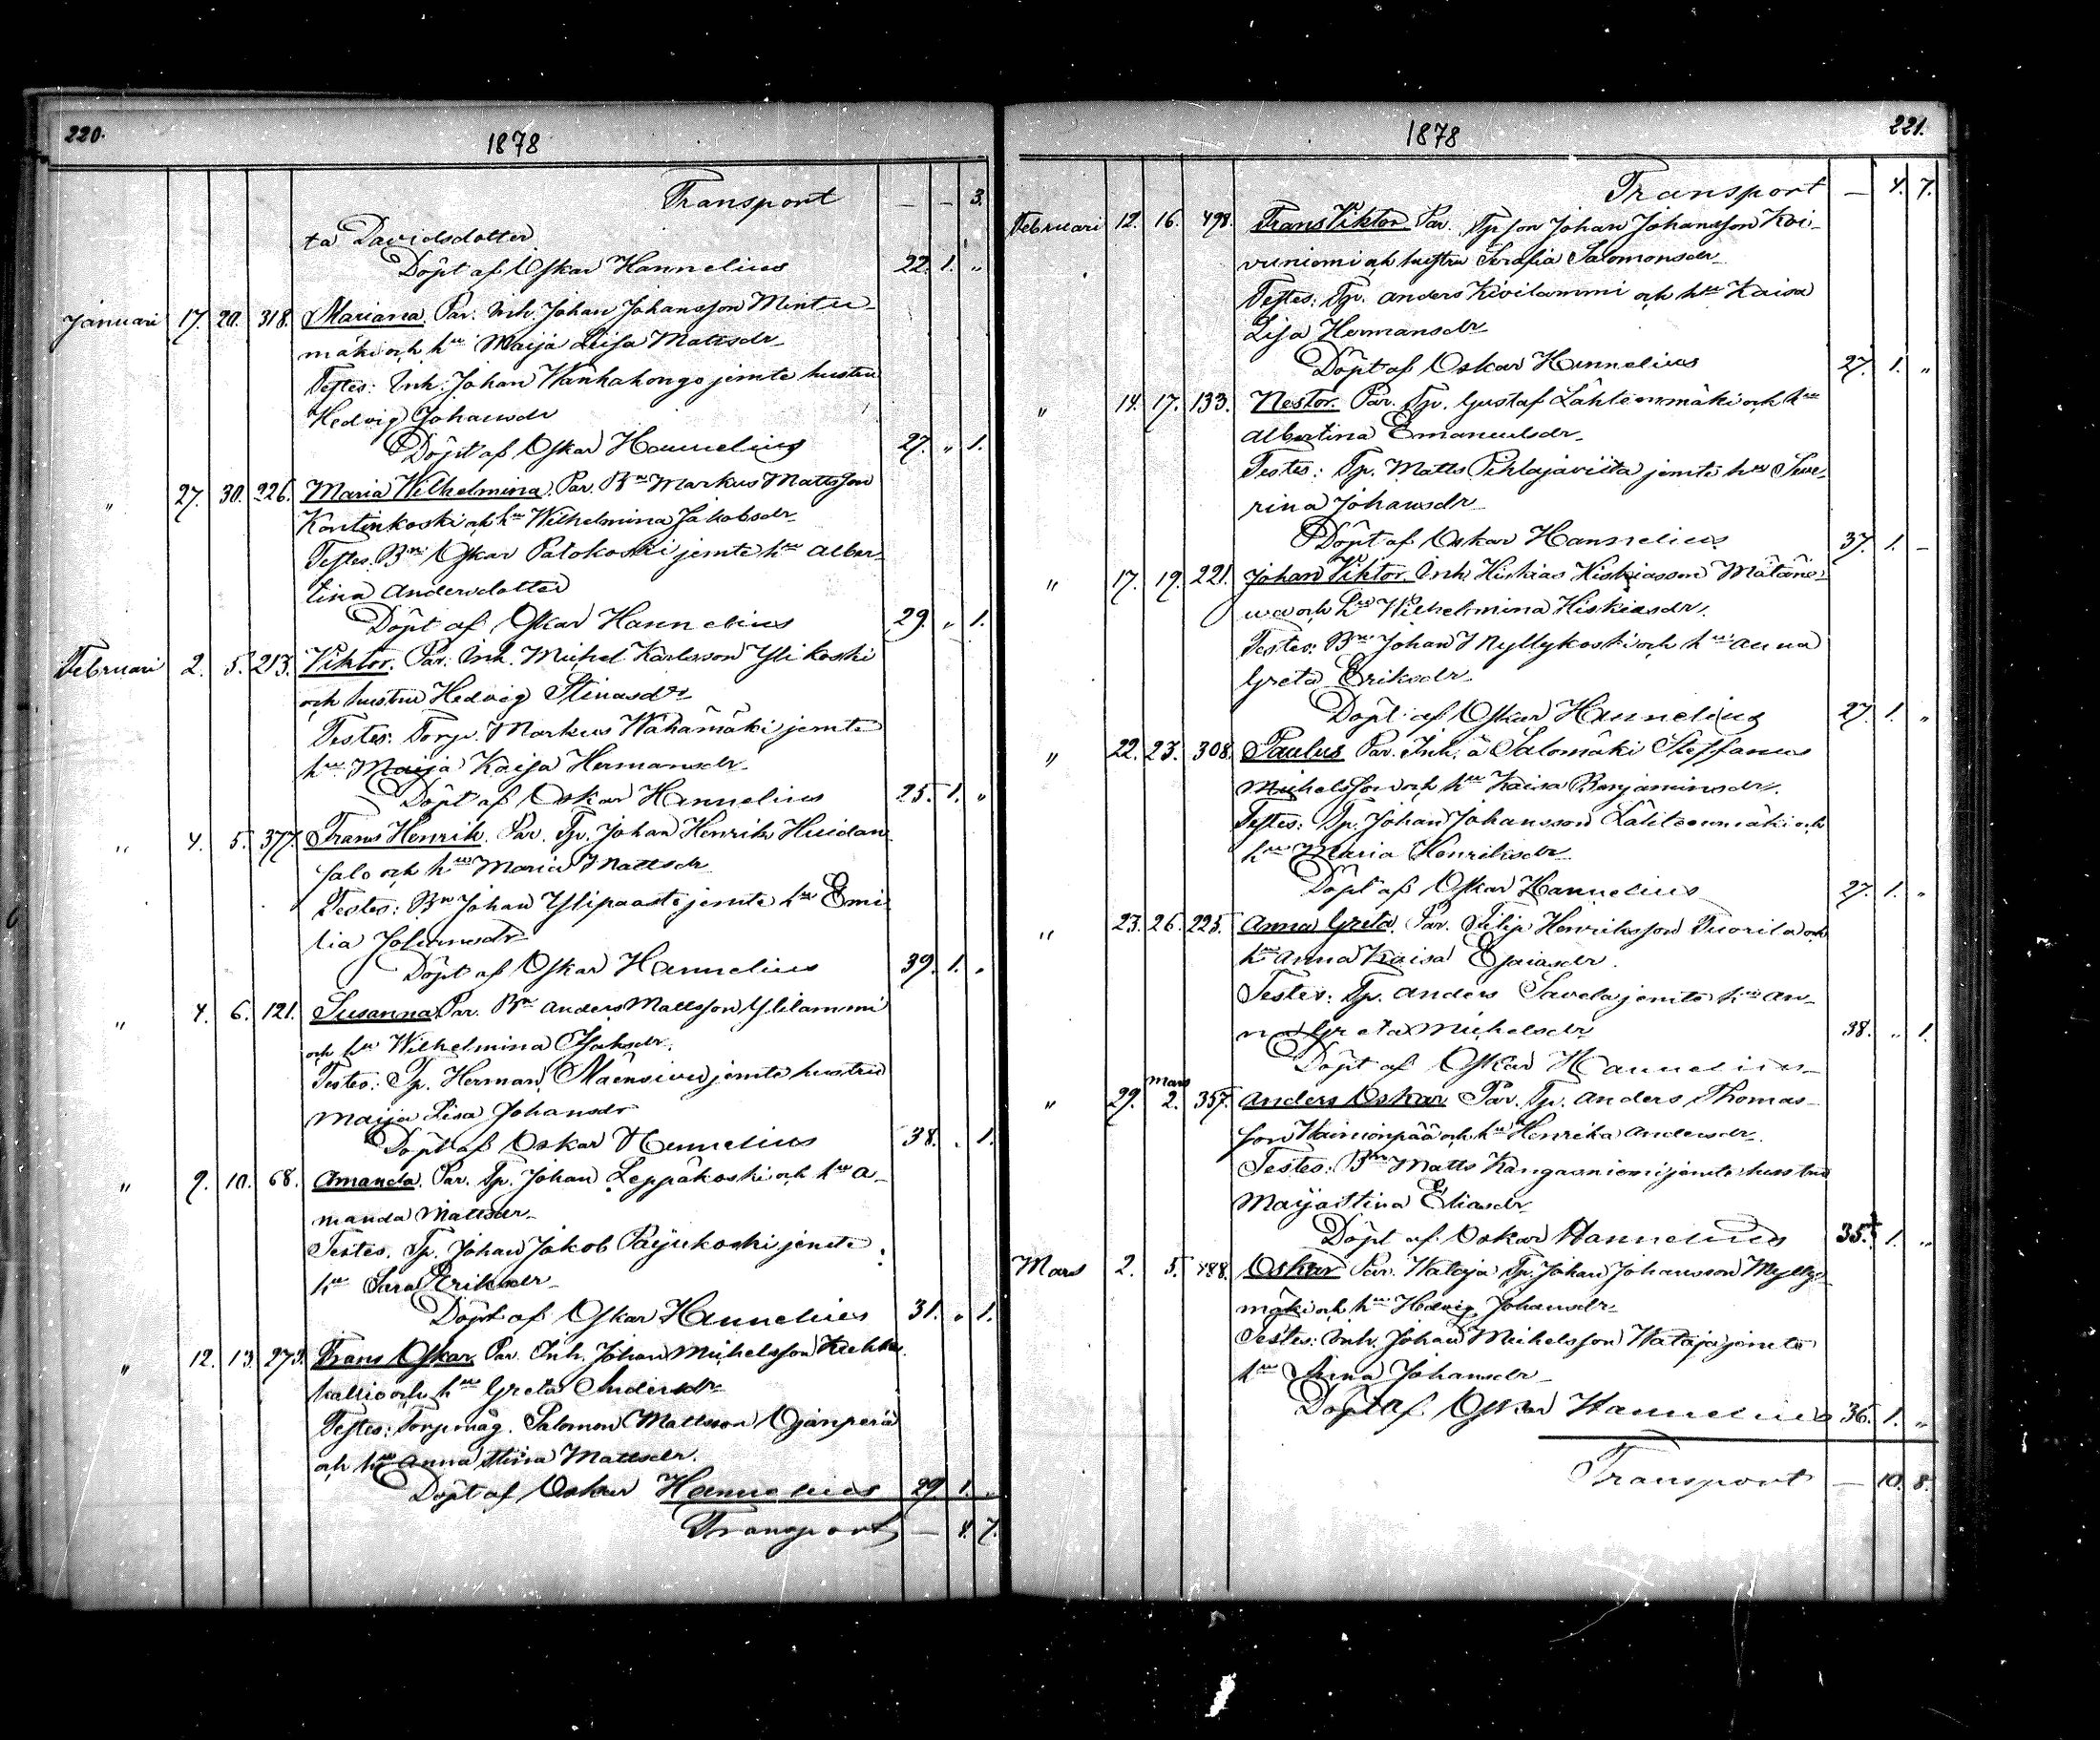 220.
1878
Transport — — 3.
ta Davidsdotter
Döpt af Oskar Hannelius 22. 1. "
Januari 17. 20. 318. Mariana. Par. Inh. Johan Johansson Mintu-
mäki och hu Maija Liisa Mattsdr
Testes: Inh. Johan Wanhahongo jemte hustru
Hedvig Johansdr
Döpt af Oskar Hannelius 27. " 1.
" 27. 30. 226. Maria Wilhelmina. Par. Bn Markus Mattsson
Kontinkoski och hu Wilhelmina Jakobsdr
Testes. Bn Oskar Patokoski jemte hu Alber-
tina Andersdotter
Döpt af Oskar Hannelius 29. " 1.
Februari 2. 5. 213. Viktor. Par. Inh. Michel Karlsson Ylikoski
och hustru Hedvig Stinasdr
Testes: Torp. Markus Wähämäki jemte
hu Maija Kaisa Hermansdr
Döpt af Oskar Hannelius 25. 1. "
" 4. 5. 377. Frans Henrik. Par. Tp. Johan Henrik Huidan
salo och hu Maria Mattsdr
Testes: Bn Johan Ylipaaste jemte hu Emi
lia Johansdr
Döpt af Oskar Hannelius 39. 1. "
" 4. 6. 121. Susanna. Par. Bn Anders Mattsson Ylilammi
och hu Wilhelmina Isaksdr.
Testes: Tp. Herman Mäensivu jemte hustru
Maija Lisa Johansdr
Döpt af Oskar Hannelius 38. " 1.
" 9. 10. 68. Amanda. Par. Tp. Johan Leppäkoski och hu A-
manda Mattsdr
Testes. Tp. Johan Jakob Pajukoski jemte
hu Sara Eriksdr
Döpt af Oskar Hannelius 31. " 1.
" 12. 13. 273. Frans Oskar. Par. Inh. Johan Michelsson
kallio och hu Greta Andersdr
Testes: Torpmåg. Salomon Mattsson Ojanperä
och hu Anna Stina Mattsdr.
Döpt af Oskar Hannelius 29. 1. "
Transport — 4. 7.
221.
1878
Transport — 4. 7.
Februari 12. 16. 498. Frans Viktor. Par. Tpson Johan Johansson Koi-
vuniemi och hustru Serafia Salomonsdr
Testes: Tp. Anders Kivilammi och hu Kaisa
Lisa Hermansdr
Döpt af Oskar Hannelius 27. 1. "
" 14. 17. 133. Nestor. Par. Tp. Gustaf Lähteenmäki och hu
Albertina Emanuelsdr
Testes: Tp. Matts Pihlajaviita jemte hu Seve-
rina Johansdr
Döpt af Oskar Hannelius 37. 1. —
" 17. 19. 221. Johan Viktor. Inh. Hiskias Hiskiasson Mätäne-
va och hu Wilhelmina Hiskiasdr.
Testes: Bn Johan Myllykoski och hu Anna
Greta Eriksdr
Döpt af Oskar Hannelius 27. 1. "
" 22. 23. 308. Paulus Par. Inh. å Salomäki Steffanus
Michelsson och hu Kaisa Benjaminsdr.
Testes: Tp. Johan Johansson Lähteenmäki och
hu Maria Henriksdr
Döpt af Oskar Hannelius 27. 1. "
" 23. 26. 225. Anna Greta. Par. Filip Henriksson Tuorila och
hu Anna Kaisa Esaiasdr.
Testes: Tp. Anders Savela jemte hu An-
na Greta Michelsdr 38. " 1.
Döpt af Oskar Hannelius
" 29. mars 2. 357. Anders Oskar Par. Tp. Anders Thomas-
son Wainionpää och hu Henrika Andersdr.
Testes: Bn Matts Kangasniemi jemte hustru
Maija Stina Eliasdr
Döpt af Oskar Hannelius 35. 1. "
Mars 2. 5. 488. Oskar Par. Wataja Tp. Johan Johansson Mylly-
mäki och hu Hedvig Johansdr
Testes: Inh. Johan Michelsson Wataja jemte
hu Anna Johansdr
Döpt af Oskar Hannelius 36. 1. "
Transport — 10. 8.